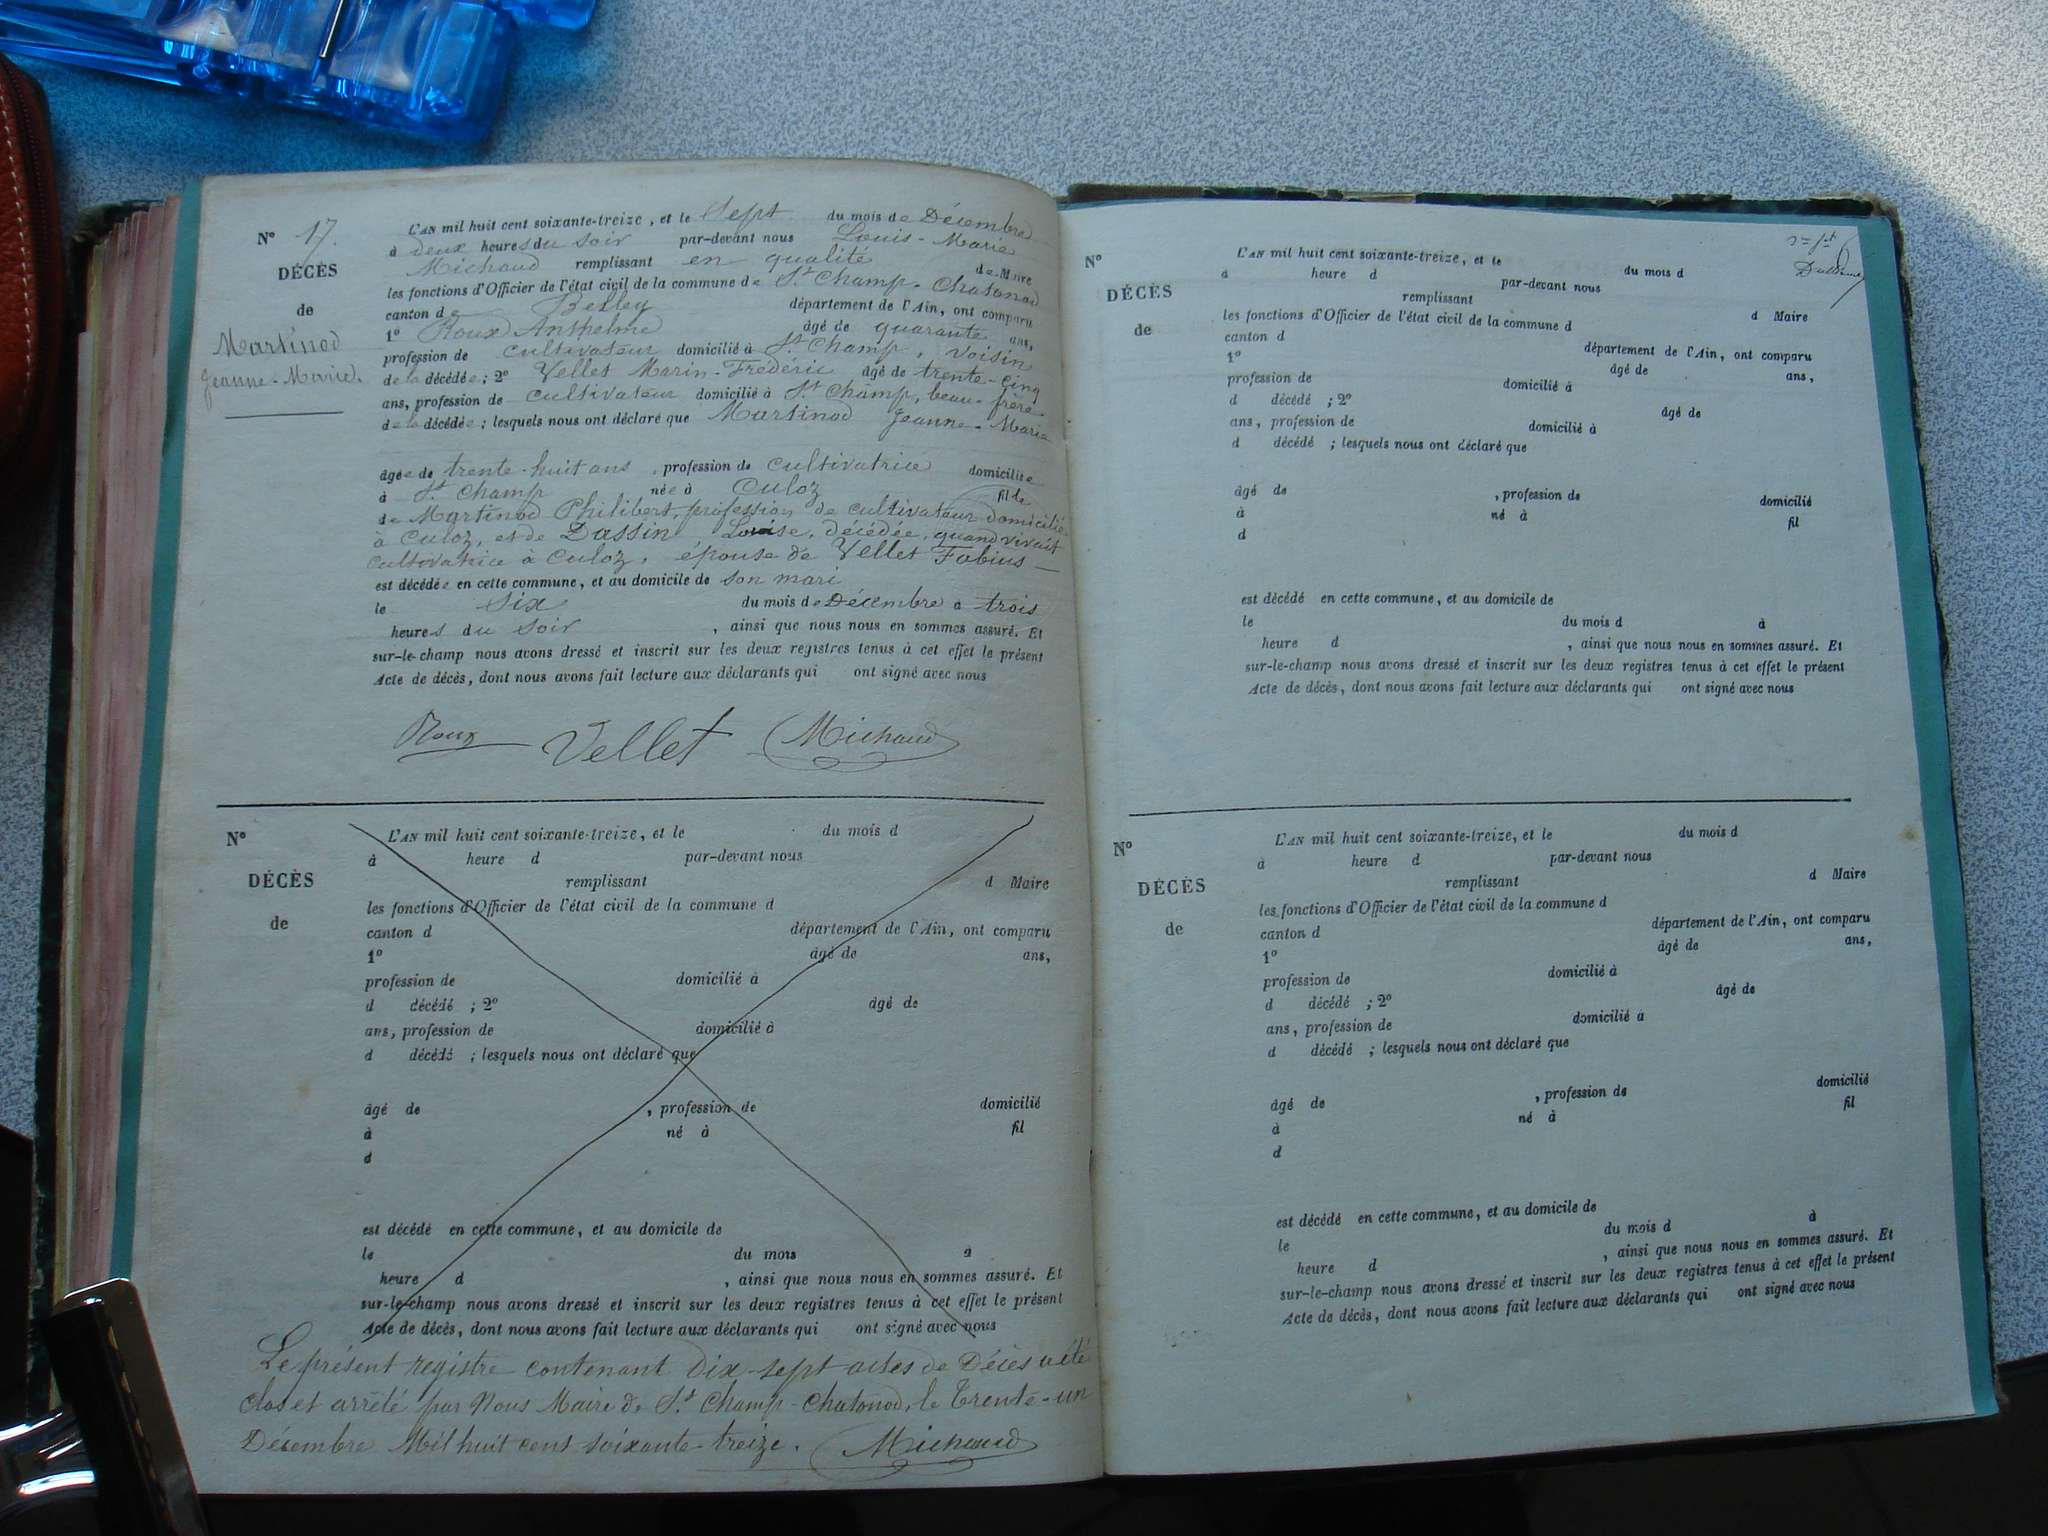 N° 17.
DÉCÈS
de
Martinod
Jeanne-Marie.
L'AN mil huit cent soixante-treize, et le Sept du mois de Décembre
à deux heures du soir par-devant nous Louis-Marie
Michaud remplissant en qualité de Maire
les fonctions d'Officier de l'état civil de la commune de St Champ-Chatonod
canton de Belley département de l'Ain, ont comparu
1° Roux Anthelme âgé de quarante ans,
profession de cultivateur domicilié à St Champ, voisin
de la décédée; 2° Vellet Marin-Frédéric âgé de trente-cinq
ans, profession de cultivateur domicilié à St Champ, beau-frère
de la décédée; lesquels nous ont déclaré que Martinod Jeanne-Marie
âgée de trente-huit ans, profession de cultivatrice domiciliée
à St Champ née à Culoz fille
de Martinod Philibert, profession de cultivateur domicilié
à Culoz, et de Dassin Louise, décédée, quand vivait
cultivatrice à Culoz, épouse de Vellet Fabius
est décédée en cette commune, et au domicile de son mari
le six du mois de Décembre à trois
heures du soir, ainsi que nous nous en sommes assuré. Et
sur-le-champ nous avons dressé et inscrit sur les deux registres tenus à cet effet le présent
Acte de décès, dont nous avons fait lecture aux déclarants qui ont signé avec nous
Roux Vellet Michaud
N°
DÉCÈS
de
L'AN mil huit cent soixante-treize, et le du mois d
à heure d par-devant nous
remplissant d Maire
les fonctions d'Officier de l'état civil de la commune d
canton d département de l'Ain, ont comparu
1° âgé de ans,
profession de domicilié à
d décédé ; 2° âgé de
ans, profession de domicilié à
d décédé ; lesquels nous ont déclaré que
âgé de , profession de domicilié
à né à fil
d
est décédé en cette commune, et au domicile de
le du mois à
heure d , ainsi que nous nous en sommes assuré. Et
sur-le-champ nous avons dressé et inscrit sur les deux registres tenus à cet effet le présent
Acte de décès, dont nous avons fait lecture aux déclarants qui ont signé avec nous
Le présent registre contenant Dix-sept actes de Décès a été
clos et arrêté par Nous Maire de St Champ-Chatonod, le Trente-un
Décembre Mil huit cent soixante-treize. Michaud
N°
DÉCÈS
de
L'AN mil huit cent soixante-treize, et le du mois d
à heure d par-devant nous
remplissant d Maire
les fonctions d'Officier de l'état civil de la commune d
canton d département de l'Ain, ont comparu
1° âgé de ans,
profession de domicilié à
d décédé ; 2° âgé de
ans, profession de domicilié à
d décédé ; lesquels nous ont déclaré que
âgé de , profession de domicilié
à né à fil
d
est décédé en cette commune, et au domicile de
le du mois d à
heure d , ainsi que nous nous en sommes assuré. Et
sur-le-champ nous avons dressé et inscrit sur les deux registres tenus à cet effet le présent
Acte de décès, dont nous avons fait lecture aux déclarants qui ont signé avec nous
N°
DÉCÈS
de
L'AN mil huit cent soixante-treize, et le du mois d
à heure d par-devant nous
remplissant d Maire
les fonctions d'Officier de l'état civil de la commune d
canton d département de l'Ain, ont comparu
1° âgé de ans,
profession de domicilié à
d décédé ; 2° âgé de
ans, profession de domicilié à
d décédé ; lesquels nous ont déclaré que
âgé de , profession de domicilié
à né à fil
d
est décédé en cette commune, et au domicile de
le du mois d à
heure d , ainsi que nous nous en sommes assuré. Et
sur-le-champ nous avons dressé et inscrit sur les deux registres tenus à cet effet le présent
Acte de décès, dont nous avons fait lecture aux déclarants qui ont signé avec nous